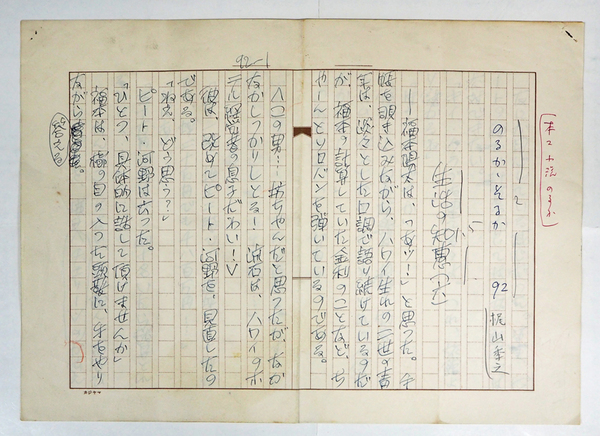 のるかそるか
92
梶山季之
生活の知恵(六)
92-1
福本
は、「おッ!」と思った。
話を聞き込みながら、ハワイ生れの二世の青
年は、淡々とした口調で語り続けているのだ
が、福本の計算していた金利のことなど、ち
やーんとソロバンを弾いているのである。
〈この男……坊ちゃんだと思ったが、なか
なかしっかりしとる! 流石は、ハワイのホ
テル経営者の息子だわい!〉
彼は、改めてピート・河野を、見直したの
である。
「ねえ、どう思う?」
ピート・河野は云った。
「ひとつ、具体的に話して頂けませんか」
福本は、
の目の入った
に、手をやり
ながら
答える
。